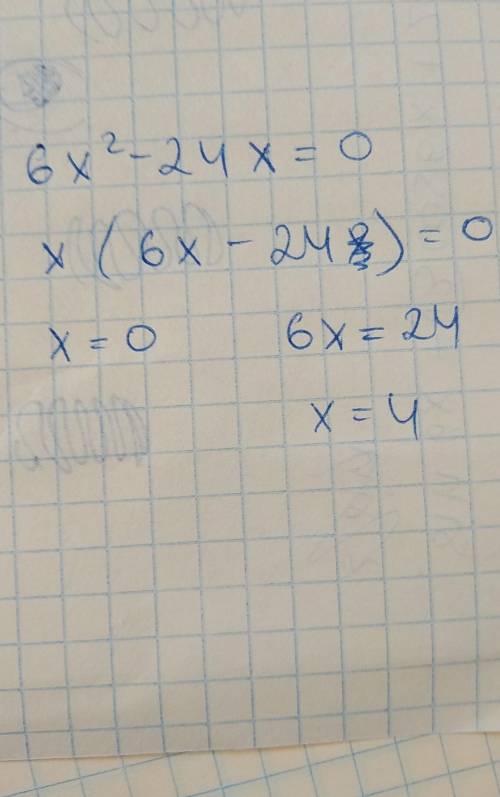 6x² - 24x = 0
x (6x - 24) = 0
x = 0 6x = 24
x = 4